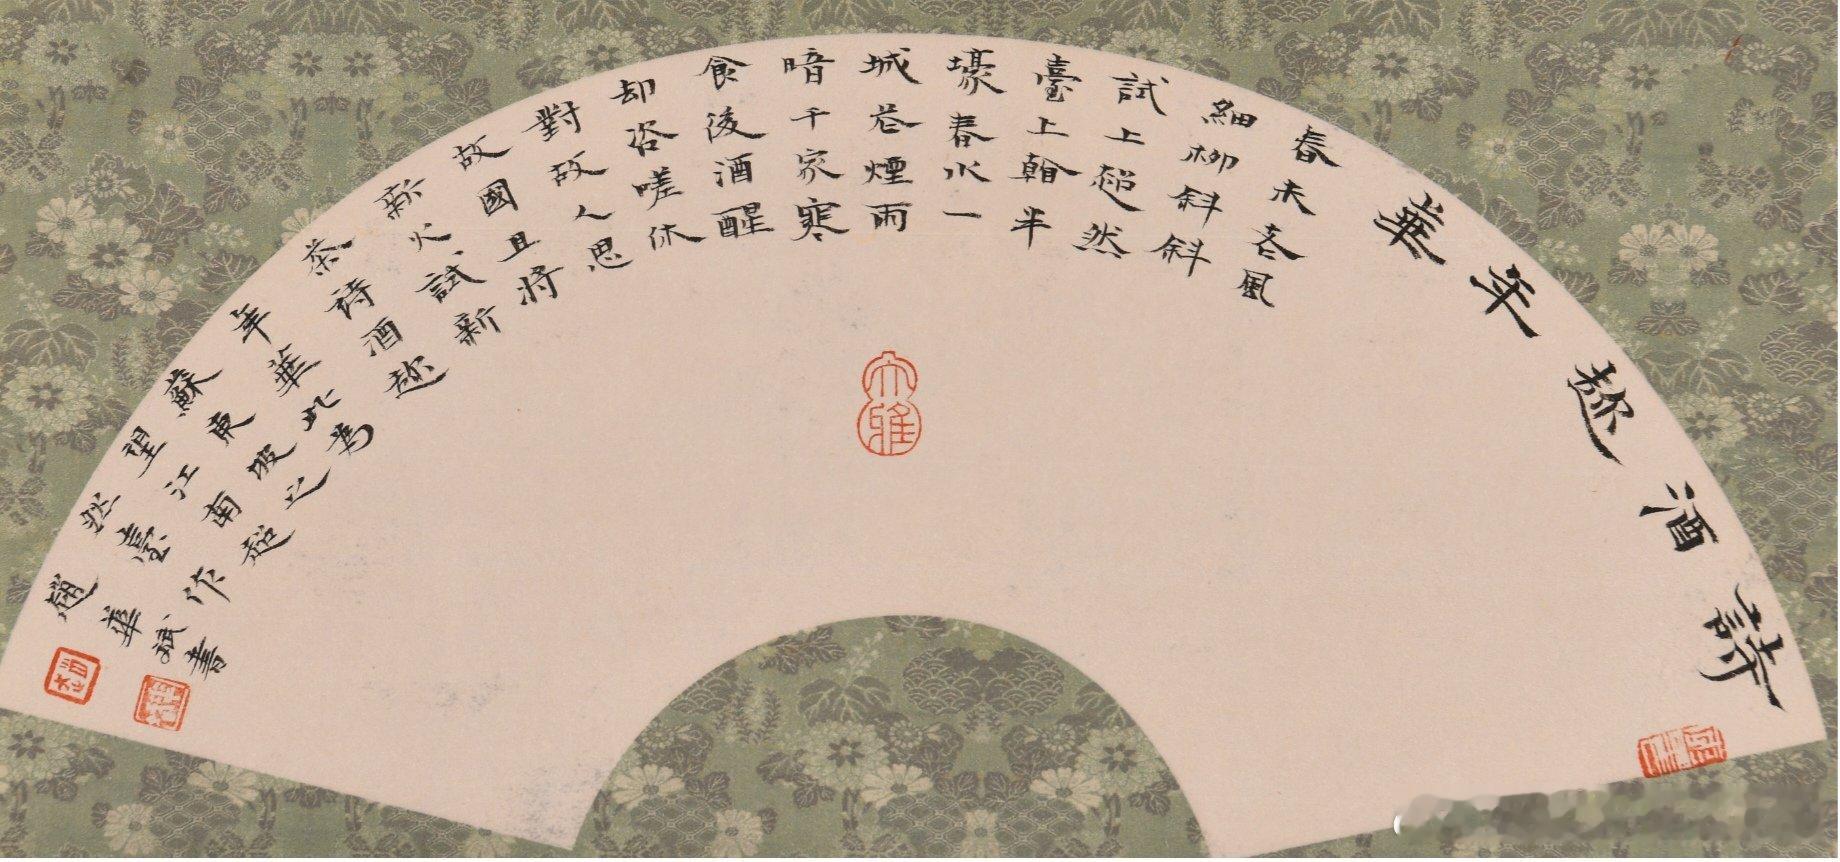 詩酒趂年華
春未老風
細柳斜斜
試上超然
臺上看半
壕春水一
城花煙雨
暗千家寒
食後酒醒
却咨嗟休
對故人思
故國且將
新火試新
茶詩酒趂
年華此為
蘇東坡之
望江南超
然臺作
趙華斌書